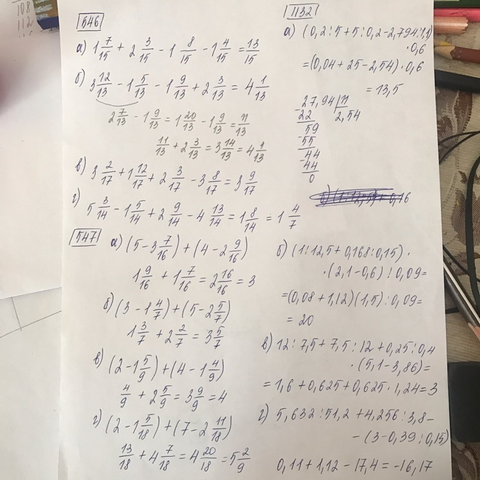 646
а) 1 7/15 + 2 3/15 - 1 8/15 - 1 4/15 = 13/15
б) 3 12/13 - 1 5/13 - 1 9/13 + 2 3/13 = 4 1/13
2 7/13 - 1 9/13 = 1 20/13 - 1 9/13 = 11/13
11/13 + 2 3/13 = 3 14/13 = 4 1/13
в) 3 2/17 + 1 12/17 + 2 3/17 - 3 8/17 = 3 9/17
г) 5 3/14 - 1 5/14 + 2 9/14 - 4 13/14 = 1 8/14 = 1 4/7
547
а) (5 - 3 7/16) + (4 - 2 9/16)
1 9/16 + 1 7/16 = 2 16/16 = 3
б) (3 - 1 4/7) + (5 - 2 5/7)
1 3/7 + 2 2/7 = 3 5/7
в) (2 - 1 5/9) + (4 - 1 4/9)
4/9 + 2 5/9 = 3 9/9 = 4
г) (2 - 1 5/18) + (7 - 2 11/18)
13/18 + 4 7/18 = 4 20/18 = 5 2/9
1132
а) (0,2:5+5:0,2-2,794:1,1)
·0,6
=(0,04+25-2,54)·0,6
=13,5
27,94 11
22 2,54
59
55
44
44
0
б) (1:12,5+0,168:0,15)·
·(2,1-0,6):0,09=
=(0,08+1,12)(1,5):0,09=
=20
в) 12:7,5+7,5:12+0,25:0,4
·(5,1-3,86)=
=1,6+0,625+0,625·1,24=3
г) 5,632:51,2+4,256:3,8-
-(3-0,39:0,15)
0,11+1,12-17,4=-16,17